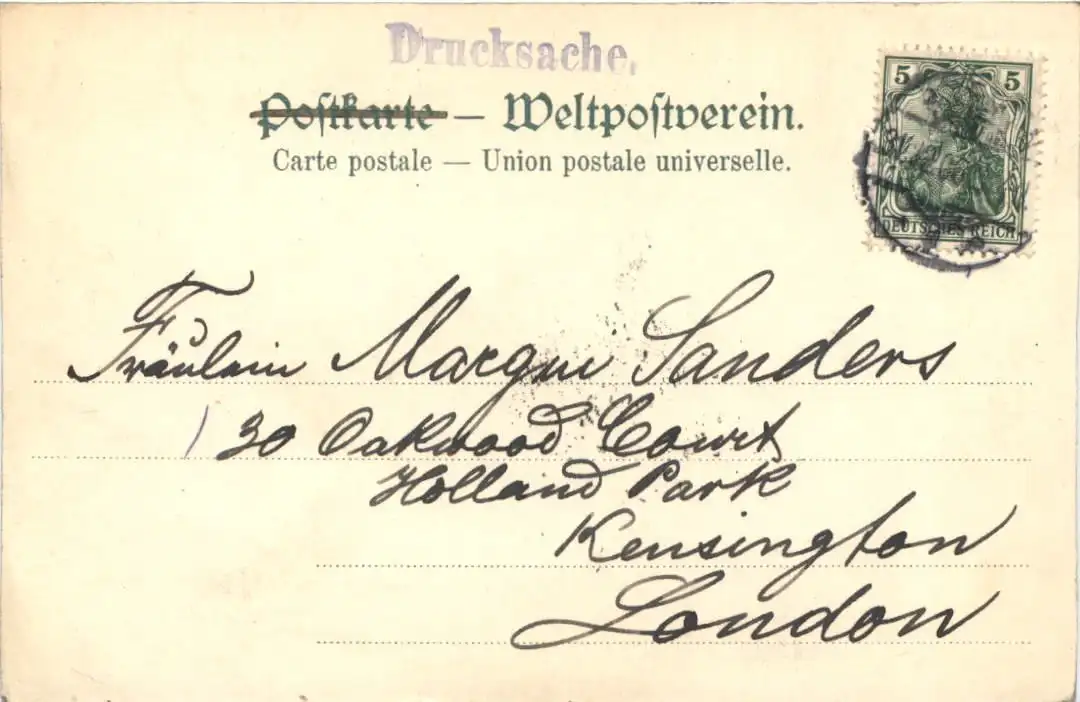 Drucksache.
Postkarte — Weltpostverein.
Carte postale — Union postale universelle.
5 5
DEUTSCHES REICH
Fräulein Margui Sanders
30 Oakwood Court
Holland Park
Kensington
London